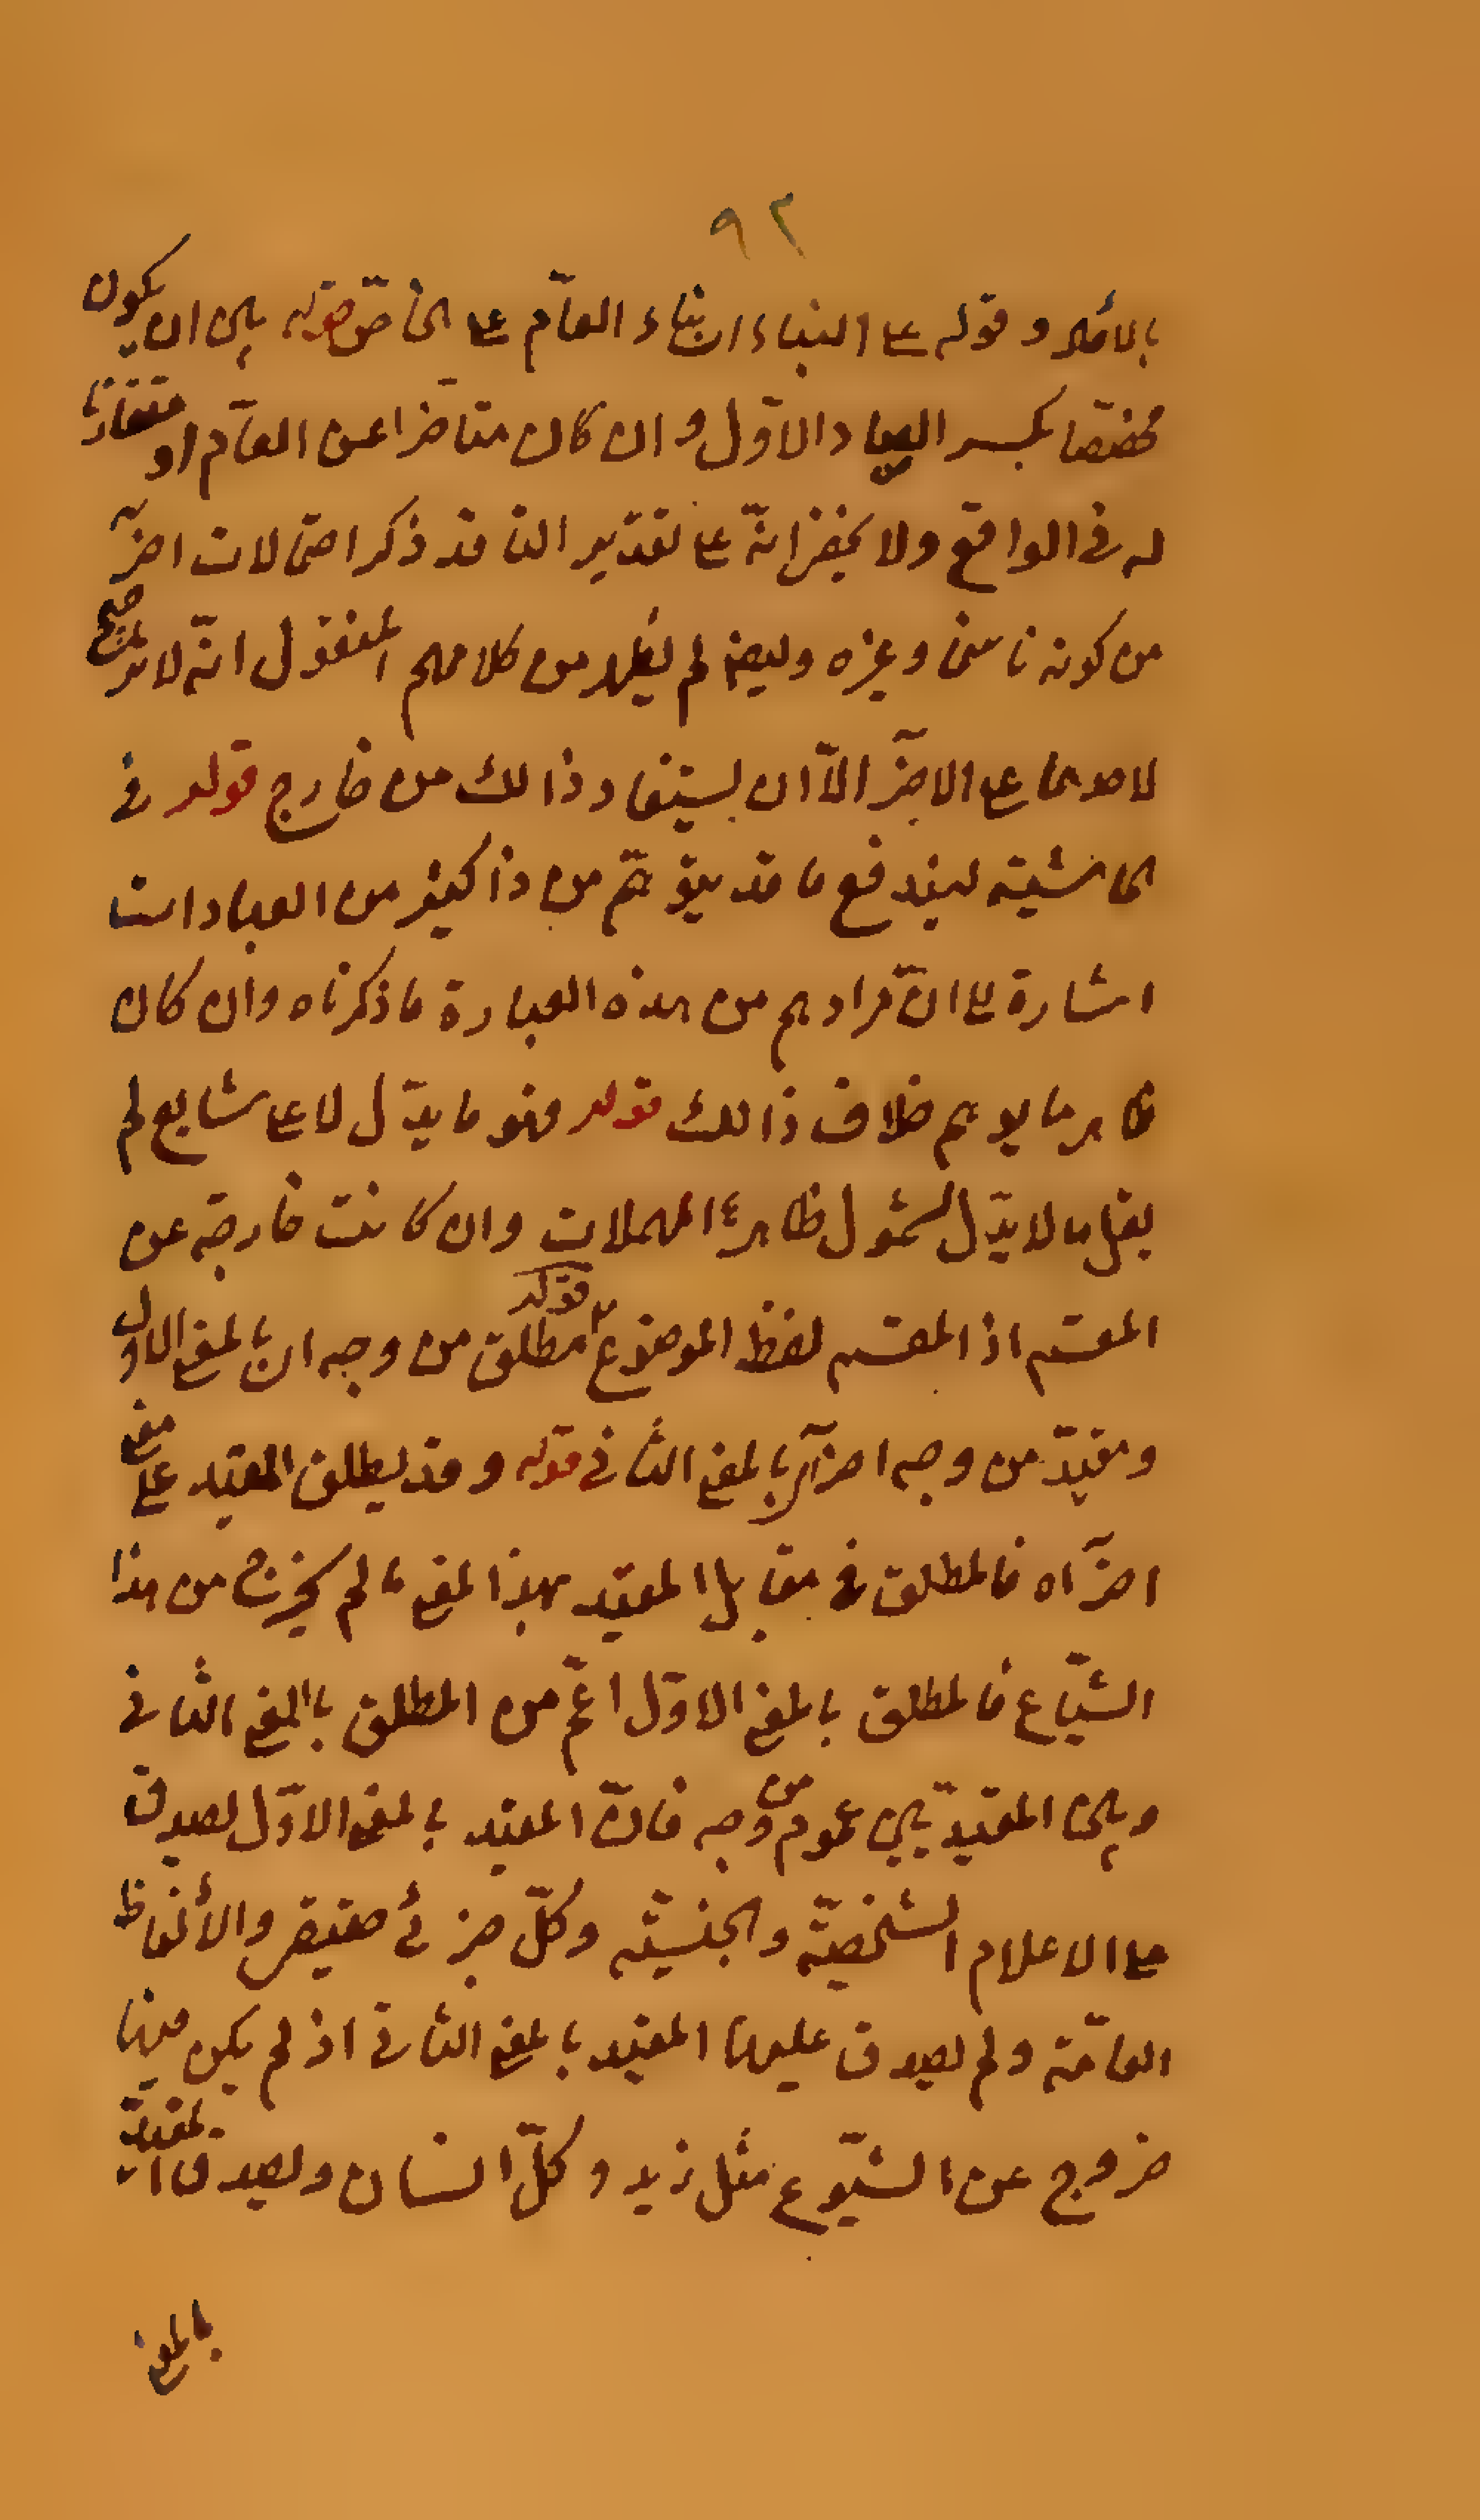 ٩٢
بالامر وقوله على البناء اى بناء العامّ على الخاصّ قوله بين ان يكون
مخصّصا بكسر الصاد الاوّل وان كان متاخّرا عن العامّ او مقارنا
له فى الواقع ولا يخفى انّه على تقدير التا قد ذكر احتمالات اخر
من كونه ناسخا وغيره وايضا لم يظهر من كلامهم المنقول انّه لا ترجيح
لاحدهما على الاخر الّا ان يستفاد ذالك من خارج قوله فى
الحاشية ليندفع ما قد يتوهّم من ذا كثير من العبادات
اشارة الى انّ مرادهم من هذه العبارة ما ذكرناه وان كان
ظاهرها يوهم خلاف ذالك قوله فهو ما يدّل لا على شايع لم
يقل ما لا يدّل لشمول ظاهره المهملات وان كانت خارجة عن
المقسم اذ المقسم لفظ الموضوع قوله مطلق من وجه اى بالمعنى الاول
ومقيّد من وجه اخر اى بالمعنى الثانى قوله وقد يطلق المقيد على معنى
اخر اه فالمطلق فى مقابل المقيد بهذا المعنى ما لم يخرج من هذا
الشيّاع فالمطلق بالمعنى الاوّل اعّم من المطلق بالمعنى الثانى
وبين المقيّدين عموم من وجه فانّ المقيد بالمعنى الاوّل يصدق
على الاعلام الشخصيّة والجنسيّة وكلّ جزئى حقيقى والألفاظ
العامّة ولم يصدق عليها المقيد بالمعنى الثانى اذ لم يكن فيها
خروج عن الشيّوع مثل زيد وكلّ انسان ويصدق المقيّد
بالمعنى